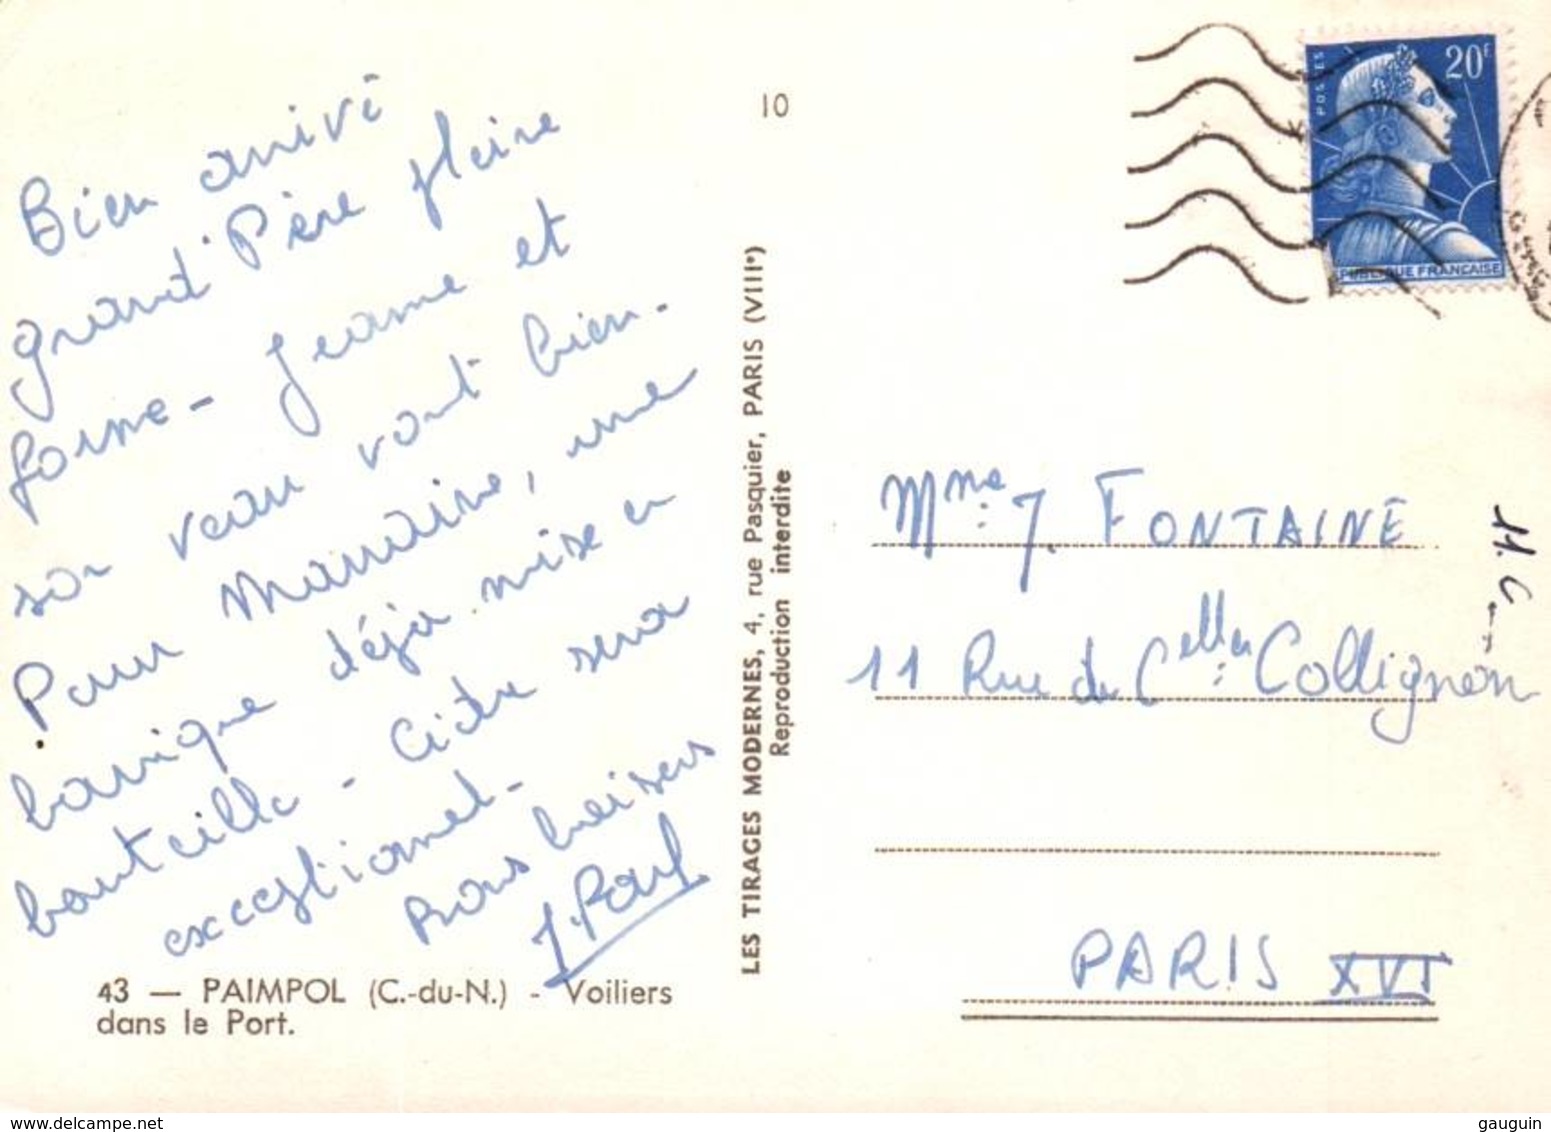 Bien arrivé
grand'Père pleine
forme - Jeanne et
son veau vont bien.
Pour Marraine, une
barrique déjà mise en
bouteille - Cidre sera
exceptionnel -
Bons baisers
J. Paul
43 — PAIMPOL (C.-du-N.) - Voiliers
dans le Port.
10
LES TIRAGES MODERNES, 4, rue Pasquier, PARIS (VIIIe)
Reproduction interdite
POSTES
20F
PUBLIQUE FRANÇAISE
Mme: J. FONTAINE
11 Rue du Celler: Collignon
PARIS XVI
11.C
gauguin